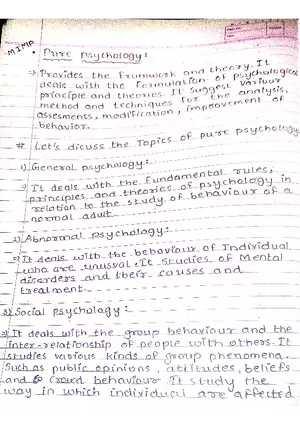 MIMP
• Pure psychology:
⇒ Provides the framwork and theory. It
deals with the formulation of psychological
principle and theories. It suggest various
method and techniques for the analysis,
assesments, modification, improvement of
behavior.
# Let's dicuss the Topics of pure psychology
1) General psychology:
⇒ It deals with the fundamental rules,
principles and theories of psychology in
relation to the study of behaviour of a
normal adult.
2) Abnormal psychology:
⇒ It deals with the behaviour of Individual
who are unusual. It studies of Mental
disorders and their causes and
treatment.
3) Social psychology:
⇒ It deals with the group behaviour and the
inter-relationship of people with others. It
studies various kinds of group phenomena.
Such as public opinions, attitudes, beliefs
and crowd behaviour It study the
way in which individual are affected